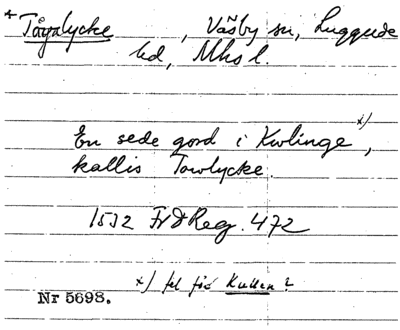 * Tågalycke , Väsby sn, Luggude
hd, Mhs l.
En sede gord i Kwlinge x),
kallis Towlycke.
1532 Fr d Reg. 472
x) fel för Kullen?
Nr 5698.